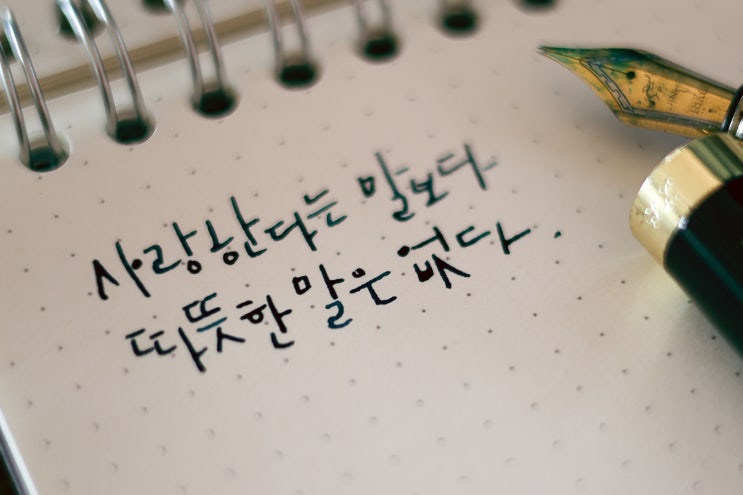 사랑한다는 말보다
따뜻한 말은 없다.